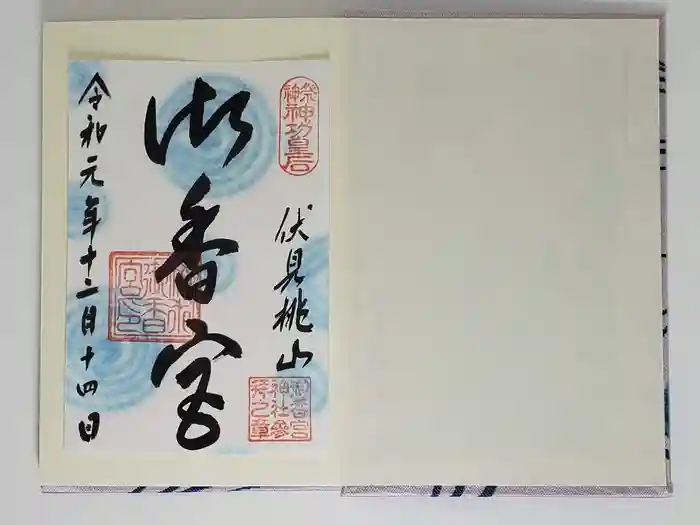 祭神
神功皇后
伏見桃山
御香宮神社参拝之章
御香宮
御香宮印
令和元年十二月十四日